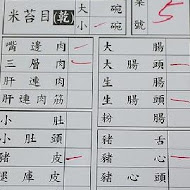 米苔目(乾) 大 碗 業
小 碗 號 5
嘴邊肉 大腸
三層肉 大腸頭
肝連肉 生腸
肝連筋 生腸頭
小肚 粉腸
小肚頭 豬舌
豬皮 豬心
腰庫皮 豬心頭